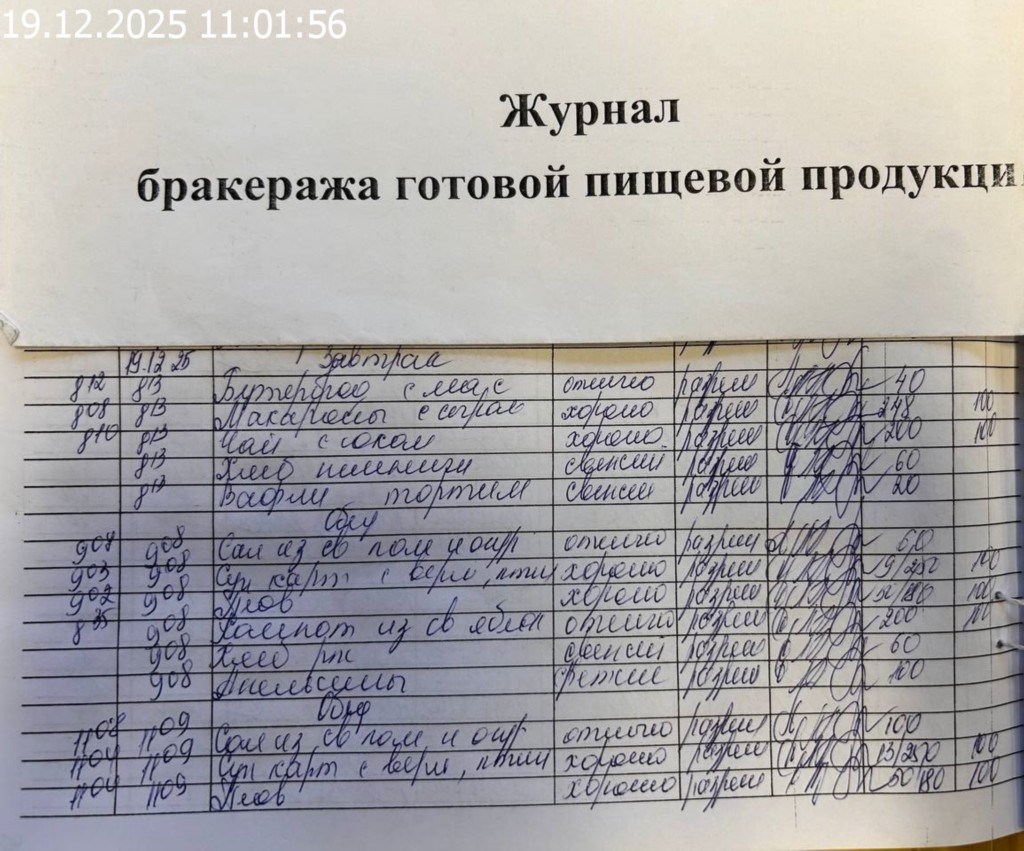 19.12.2025 11:01:56
Журнал
бракеража готовой пищевой продукци
19.12 25 Завтрак
8 12 8 13 Бутерброд с мас отлично разреш 40
8 08 8 13 Макароны с сыром хорошо разреш 100
8 10 8 13 Чай с соком хорошо разреш 200 100
8 13 Хлеб пшенични свежий разреш 60
8 13 Вафли тортим свежий разреш 20
Обед
9 08 Сал из св пом и огур отлично разреш 60
9 03 9 08 Суп карт с верм, птиц хорошо разреш 100
9 02 9 08 Плов хорошо разреш 100
8 35 9 08 Компот из св яблок отлично разреш 200 100
9 08 Хлеб рж свежий разреш 60
9 08 Апельсины свежие разреш 100
Обед
11 08 11 09 Сал из св пом и огур отлично разреш 100
11 04 11 09 Суп карт с верм, птиц хорошо разреш 100
11 04 11 09 Плов хорошо разреш 100